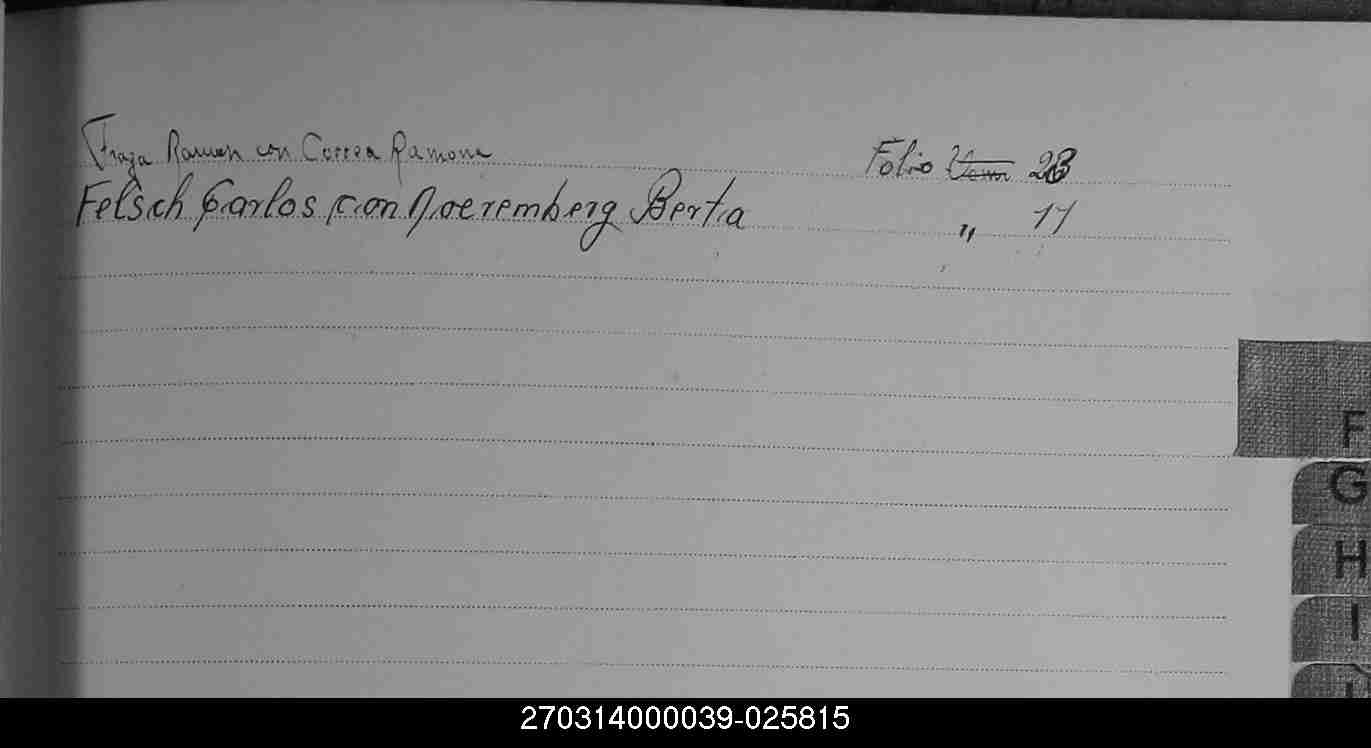 Fraga Ramon con Correa Ramona Folio 23
Felsch Carlos con Noeremberg Berta " 11
F
G
H
I
270314000039-025815